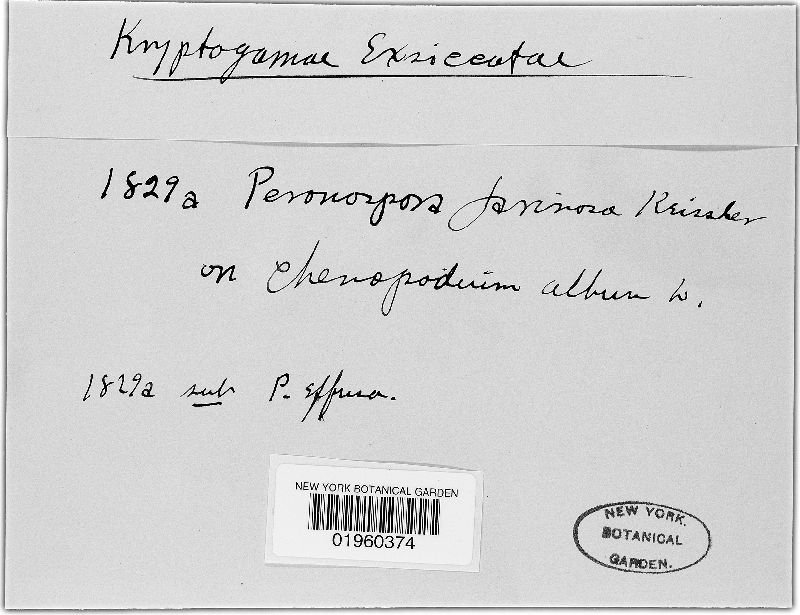 Kryptogamae Exsiccatae
1829a Peronospora farinosa Keissler
on Chenopodium album L.
1829a sub P. effusa.
NEW YORK BOTANICAL GARDEN
01960374
NEW YORK.
BOTANICAL
GARDEN.